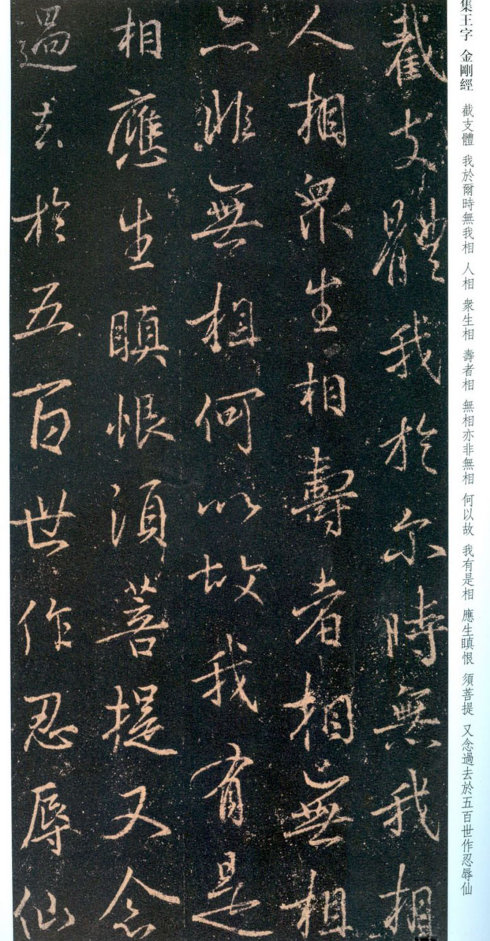 集王字 金剛經 截支體 我於爾時無我相 人相 衆生相 壽者相 無相亦非無相 何以故 我有是相 應生瞋恨 須菩提 又念過去於五百世作忍辱仙
截支體我於尓時無我相
人相衆生相壽者相無相
亦非無相何以故我有是
相應生瞋恨須菩提又念
過去於五百世作忍辱仙